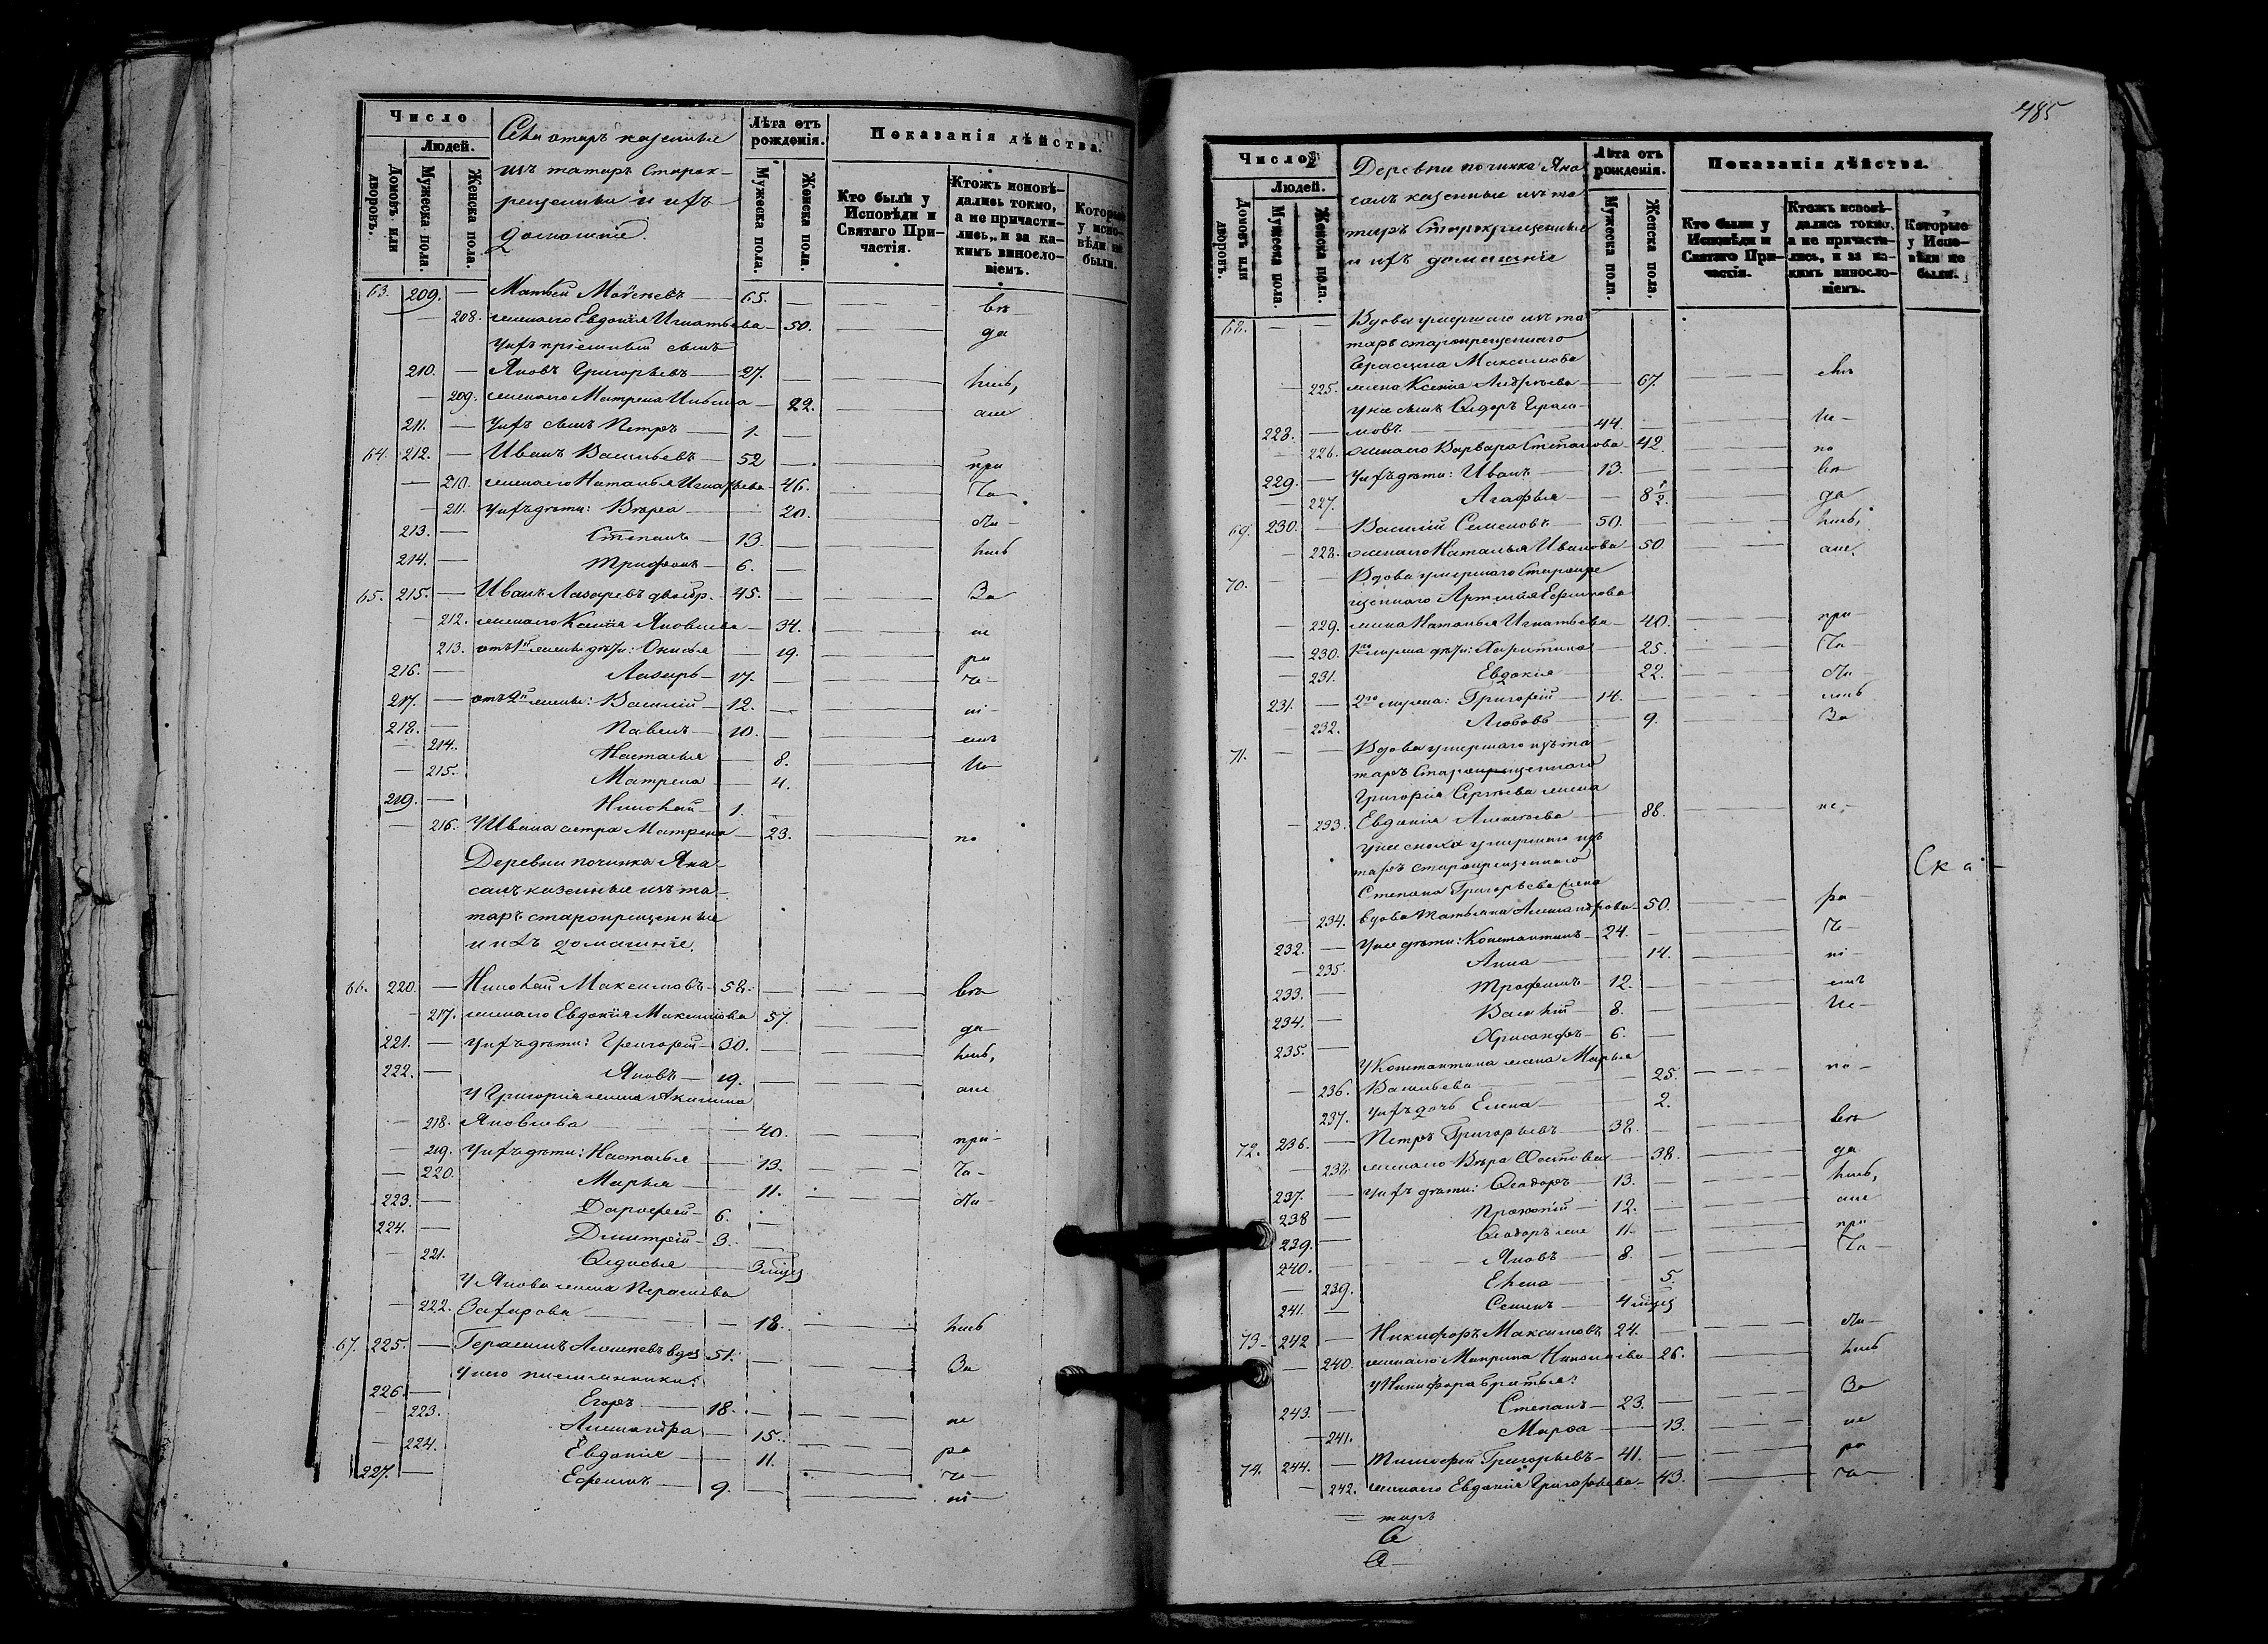 485
Число
Людей.
Домовъ или дворовъ.
Мужеска пола.
Женска пола.
Села тожъ казенные
изъ татаръ Старок-
рещенные и ихъ
домашніе.
Лѣта отъ рожденія.
Мужеска пола.
Женска пола.
Показанія дѣйства.
Кто были у Исповѣди и Святаго Причастія.
Ктожъ исповѣдались токмо, а не причастились, и за какимъ винословіемъ.
Которые у исповѣди не были.
63. 209. — 65. — въ
208. жена его Евдокія Игнатьева — 50. да
У нихъ пріемный сынъ
210. — Яковъ Григорьевъ — 27.
209. жена его Матрена Ильина — 22.
211. — У нихъ сынъ Петръ — 1.
64. 212. — Иванъ Васильевъ — 52 — при
210. жена его Наталья Игнатьева — 46. ча
211. У нихъ дѣти: Вѣра — 20. сти
213. — Степанъ — 13.
214. — Трифонъ — 6.
65. 215. — Иванъ Лазаревъ двоебр. 45. — За
212. жена его Ксенія Яковлева — 34. не
213. отъ 1й жены дѣти: Онисья 19. ра
216. — Лазарь — 17. че
217. — отъ 2й жены: Василій — 12. ні
218. — Павелъ — 10. емъ
214. Настасья — 8. Не
215. Матрена — 4.
219. — Николай — 1.
216. У Ивана сестра Матрена — 23. по
Деревни починка Яна-
салъ казенные изъ та-
таръ старокрещенные
и ихъ домашніе.
66. 220. — Николай Максимовъ — 58. — въ
217. жена его Евдокія Максимова 57. да
221. — У нихъ дѣти: Григорій — 30.
222. — Яковъ — 19.
У Григорія жена Акилина
218. Яковлева — 40. при
219. У нихъ дѣти: Настасья — 13. ча
220. Марья — 11. сти
223. — Дарофей — 6.
224. — Димитрій — 3.
221. Ѳедосья — 3 мѣсяц
У Якова жена Парасковья
222. Захарова — 18.
67. 225. — Герасимъ Алексѣевъ вдов 51. — За
У него племянники:
226. — Егоръ — 18. не
223. Александра — 15. ра
224. Евдокія — 11. че
227. — Ефимъ — 9. ні
Число
Людей.
Домовъ или дворовъ.
Мужеска пола.
Женска пола.
Деревни починка Яна
салъ казенные изъ та
таръ Старокрещенные
и ихъ домашніе
Лѣта отъ рожденія.
Мужеска пола.
Женска пола.
Показанія дѣйства.
Кто были у Исповѣди и Святаго Причастія.
Ктожъ исповѣдались токмо, а не причастились, и за какимъ винословіемъ.
Которые у Исповѣди не были.
68. — — Вдова умершаго изъ та
таръ старокрещеннаго
Герасима Максимова
225. жена Ксенія Андреева — 67. емъ
У нея сынъ Ѳедоръ Гераси-
228. — мовъ — 44. Не
226. жена его Варвара Степанова — 42. по
229. — У нихъ дѣти: Иванъ — 13. въ
227. Агафья — 8½. да
69. 230. — Василій Семеновъ — 50.
228. жена его Наталья Иванова — 50.
70. — — Вдова умершаго Старокре
щеннаго Артемія Ефимова
229. жена Наталья Игнатьева — 40. при
230. 1го мужа дѣти: Харитина — 25. ча
231. Евдокія — 22. сти
231. — 2го мужа: Григорій — 14.
232. Любовь — 9. За
71. — — Вдова умершаго изъ та
таръ Старокрещеннаго
Григорія Сергѣева жена
233. Евдокія Алексѣева — 88. не
У нея сноха умершаго изъ
таръ старокрещеннаго
Степана Григорьева жена Ска
234. вдова Татьяна Александрова — 50. ра
232. — У нее дѣти: Константинъ — 24. че
235. Анна — 14. ні
233. — Трофимъ — 12. емъ
234. — Василій — 8. Не
235. — Хрисанфъ — 6.
У Константина жена Марья
236. Васильева — 25. по
237. У нихъ дочь Елена — 2.
72. 236. — Петръ Григорьевъ — 38. въ
238. жена его Вѣра Осипова — 38. да
237. — У нихъ дѣти: Ѳеодоръ — 13.
238 — Прокопій — 12.
239. — Ѳеодоръ же 11. при
240. — Яковъ — 8. ча
239. Елена — 5.
241. — Семенъ — 4 мѣсяц
73 242 — Никифоръ Максимовъ 24. сти
240. жена его Маврина Николаева — 26.
У Никифора братья: За
243. — Степанъ — 23.
241. Марфа — 13. не
74. 244. — Тимофей Григорьевъ — 41. ра
242. жена его Евдокія Григорьева — 43. че
таръ